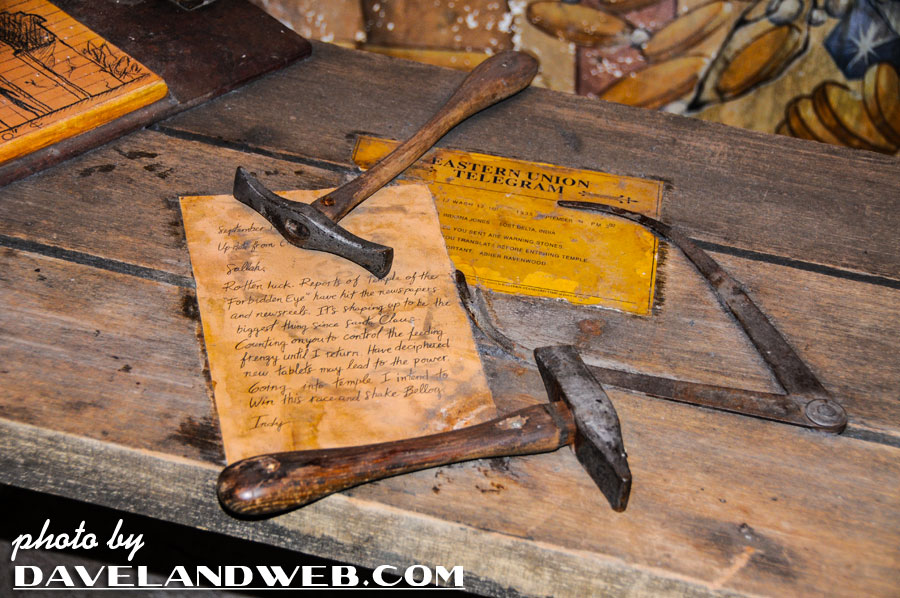 EASTERN UNION
TELEGRAM
INDIANA JONES LOST DELTA, INDIA
YOU SENT ARE WARNING STONES
YOU TRANSLATE BEFORE ENTERING TEMPLE.
ABNER RAVENWOOD
September
Update from
Sallah,
Rotten luck. Reports of Temple of the
Forbidden Eye" have hit the newspapers
and newsreels. It's shaping up to be the
biggest thing since Santa Claus.
Counting on you to control the feeding
frenzy until I return. Have deciphered
new tablets may lead to the power.
Going into temple. I intend to
Win this race and shake Belloq.
Indy
photo by
DAVELANDWEB.COM